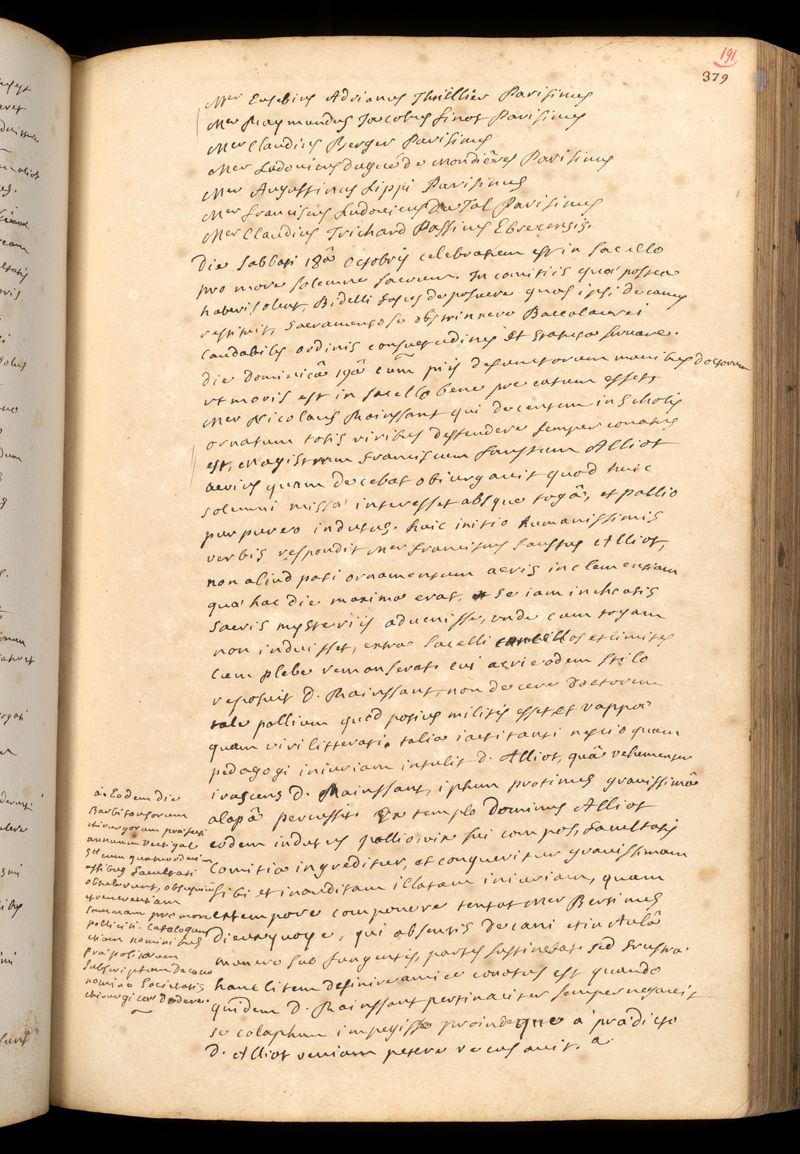 191
379
Mer Eusebius Adrianus Thuillier Parisinus
Mer Raymundus Jacobus finot Parisinus
Mer Claudius Berger Parisinus
Mer Ludovicus dugué de Mondiéres Parisinus
Mer Augustinus Lippi Parisinus
Mer franciscus Ludovicus Du Tal Parisinus
Mer Claudius Trichard Passius Ebrecensis.
Die Sabbati 18â Octobris celebratum est in Sacello
pro more solemne sacrum. In comitiis quæ postea
haberi solent, Bidelli de posuere quas ipsi decanus
restituit, Sacramento se obstrinxere Baccalaurei
laudabiles ordinis consuetudines et statuta servare.
die dominicâ 19â cûm piis defunctorum manibus doctorum
ut moris est in sacello bene precatum esset,
Mer Nicolaus Mainssant qui decentem in scholis
ornatum totis viribus deffendere semper conatus
est, Magistrum franciscum faustum Alliot
acrius quam decebat obiurgavit quod huic
solemni missæ interesset absque togâ, et pallio
purpureo indutus. huic initio humanissimis
verbis respondit Mer franciscus faustus Alliot,
non aliud pati ornamentum aeris inclementiam
quæ hac die maxima erat, se iam inchoatis
sacris mysteriis advenisse, unde cum togam
non induisset, extra sacelli cancellos et limites
cum plebe remanserat. cui acri eodem stilo
reposuit D. Mainssant, non decere doctorem
tale pallium quod potius militis esset et vappæ
quam viri litterati. talia iactitanti nescio quam
pedagogi iniuriam intulit D. Alliot, quâ vehementer
irascens D. Mainssant, ipsum protinus gravissimâ
alapâ percussit. Extemplo Dominus Alliot
eodem indutus pallio, vix sui compos, facultatis
Comitia ingreditur, et conqueritur gravissimam
sibi et inauditam illatam iniuriam, quam
extempore componere tentat Mer Bertinus
dieuxyvoye, qui absentis decani et in Aulâ
munere suo fungentis, partes sustinebat. sed frustra
hanc litem definire amice conatus est quando
quidem D. Mainssant pertinaciter semper negavit
se colaphum impegisse proindeque a prædicto
D. Alliot veniam petere recusavit. a
a. Eadem die
Barbitonsorum
chirurgorum præfecti
annuum vectigal
Sti cum quatuordecim
assibus facultati
obtulerunt, obsequium
et reverentiam
summam pro more
polliciti. Catalogum
etiam nominibus
præpositorum
subscriptum decano
nomine Societatis
chirurgicæ dedere.